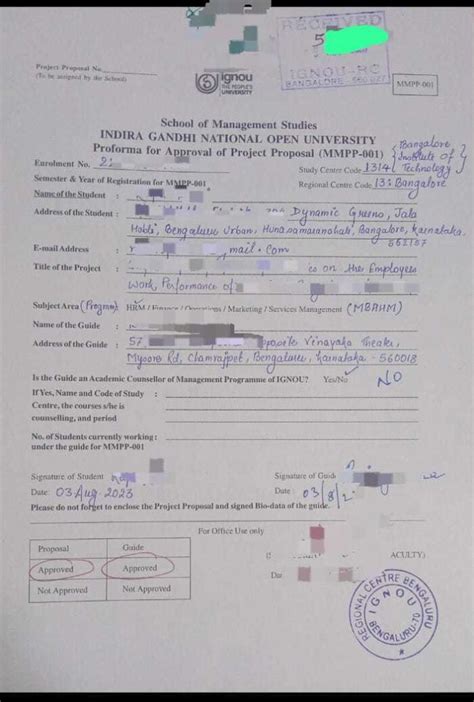 RECEIVED
5
IGNOU-RC
BANGALORE 560 027
Project Proposal No.
(To be assigned by the School)
ignou
THE PEOPLE'S
UNIVERSITY
MMPP-001
School of Management Studies
INDIRA GANDHI NATIONAL OPEN UNIVERSITY
Proforma for Approval of Project Proposal (MMPP-001) {Bangalore
Institute of
Technology}
Enrolment No. 2 Study Centre Code 1314
Semester & Year of Registration for MMPP-001 Regional Centre Code 13: Bangalore
Name of the Student :
Address of the Student : Dynamic Jala
Hobli, Bengaluru Urban, Bangalore, Karnataka.
562157
E-mail Address : mail.com
Title of the Project : cs on the Employees
Work Performance of
Subject Area (Program): HRM / Finance / Operations / Marketing / Services Management (MBAHM)
Name of the Guide :
Address of the Guide : 57, opposite Vinayaka
Mysore Rd, Chamrajpet, Bengaluru, Karnataka - 560018
Is the Guide an Academic Counsellor of Management Programme of IGNOU? Yes/No NO
If Yes, Name and Code of Study :
Centre, the courses s/he is
counselling, and period
No. of Students currently working :
under the guide for MMPP-001
Signature of Student Signature of Guide
Date: 03 Aug 2023 Date : 03/8/2
Please do not forget to enclose the Project Proposal and signed Bio-data of the guide.
For Office Use only
Proposal Guide
Approved Approved
Not Approved Not Approved
ACULTY)
REGIONAL CENTRE BENGALURU
IGNOU
BENGALURU-70